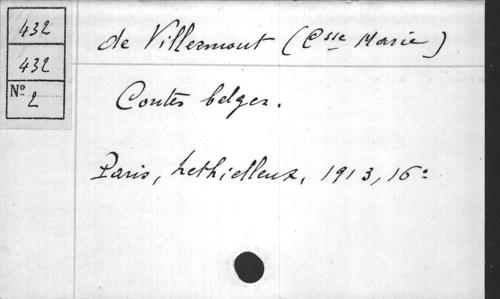 432
432
Nº 2
de Villermont (Csse Marie)
Contes belges.
Paris, Lethielleux, 1913, 16º